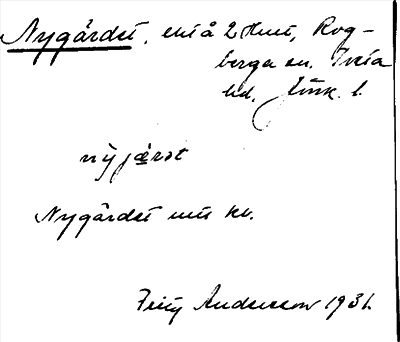 Nygärdet, ett å 2 Hmt, Rog-
berga sn. Tveta
hd. Jönk. l.
nỳjæ̀rət
Nygärdet utt kv.
Fritz Andersson 1931.